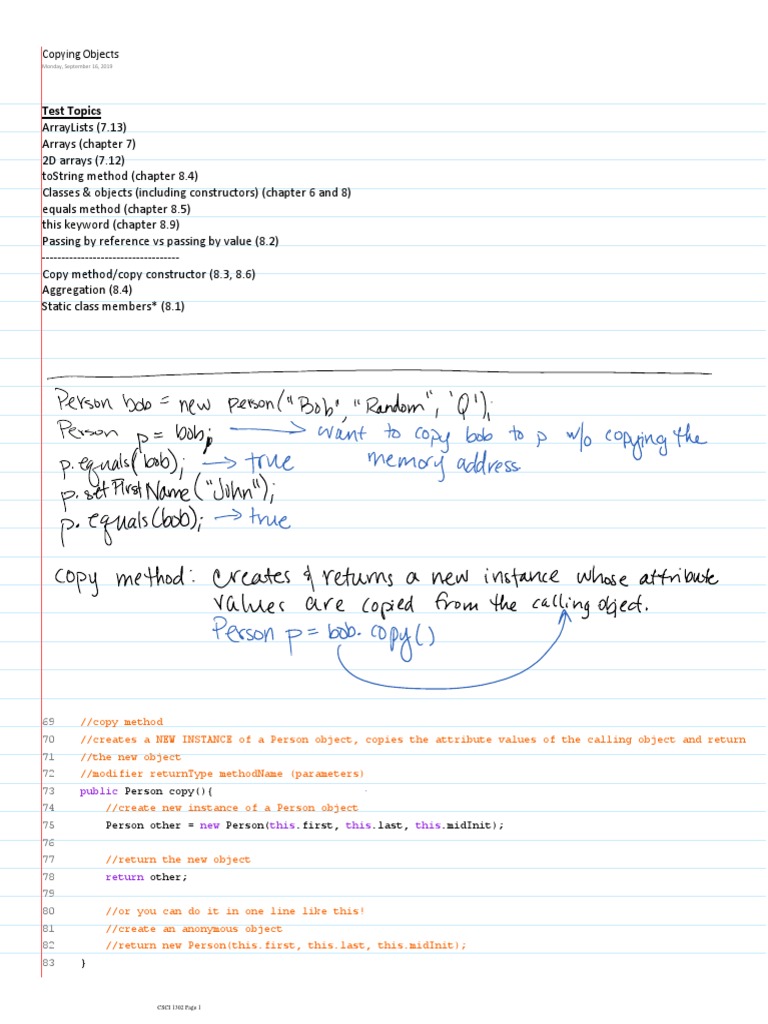 Copying Objects
Monday, September 16, 2019
Test Topics
ArrayLists (7.13)
Arrays (chapter 7)
2D arrays (7.12)
toString method (chapter 8.4)
Classes & objects (including constructors) (chapter 6 and 8)
equals method (chapter 8.5)
this keyword (chapter 8.9)
Passing by reference vs passing by value (8.2)
-----------------------------------
Copy method/copy constructor (8.3, 8.6)
Aggregation (8.4)
Static class members* (8.1)
Person bob = new Person("Bob", "Random", 'Q');
Person p = bob; → want to copy bob to p w/o copying the
memory address
p.equals(bob); → true
p.setFirstName("John");
p.equals(bob); → true
copy method: creates & returns a new instance whose attribute
values are copied from the calling object.
Person p = bob.copy()
69 //copy method
70 //creates a NEW INSTANCE of a Person object, copies the attribute values of the calling object and return
71 //the new object
72 //modifier returnType methodName (parameters)
73 public Person copy(){
74 //create new instance of a Person object
75 Person other = new Person(this.first, this.last, this.midInit);
76
77 //return the new object
78 return other;
79
80 //or you can do it in one line like this!
81 //create an anonymous object
82 //return new Person(this.first, this.last, this.midInit);
83 }
CSCI 1302 Page 1